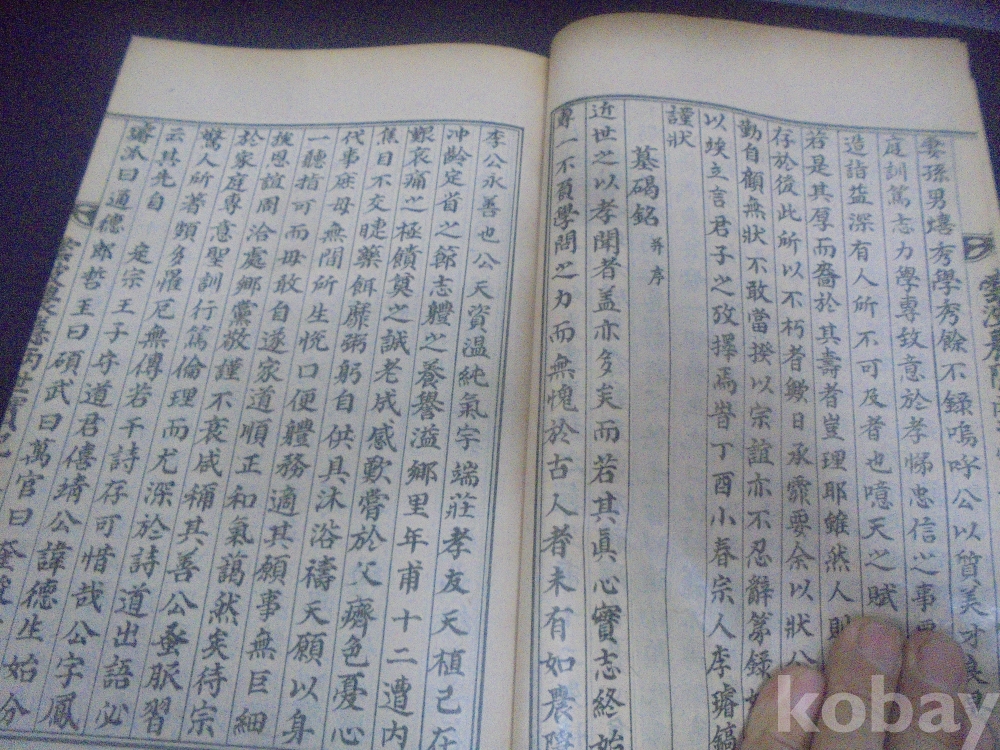 妻孫男熺秀學秀餘不錄嗚呼公以質美才良
庭訓篤志力學專致意於孝悌忠信之事
造詣益深有人所不可及者也噫天之賦
若是其厚而嗇於其壽者豈理耶雖然人則
存於後此所以不朽者歟日承霏要余以狀公
勤自顧無狀不敢當揆以宗誼亦不忍辭篆錄
以竢立言君子之攷擇焉旹丁酉小春宗人李璿鎬
謹狀
墓碣銘 并序
近世之以孝聞者盖亦多矣而若其眞心實志終始
專一不負學問之力而無愧於古人者未有如農隱
李公永善也公天資温純氣宇端莊孝友天植已在
冲齡定省之節志體之養譽溢鄉里年甫十二遭内
艱哀痛之極饋奠之誠老成感歎嘗於父癠色憂心
焦目不交睫藥餌靡粥躬自供具沐浴禱天願以身
代事庶母無間所生悅口便體務適其願事無巨細
一聽指可而母敢自遂家道順正和氣藹然矣待宗
族恩誼周洽處鄉黨敬謹不衰咸稱其善公蚤服習
於家庭專意聖訓行篤倫理而尤深於詩道出語必
驚人所著頗多罹厄無傳若干詩存可惜哉公字鳳
云其先自 定宗王子守道君僖靖公諱德生始分
璿派曰通德郎哲王曰碩武曰萬官曰
kobay